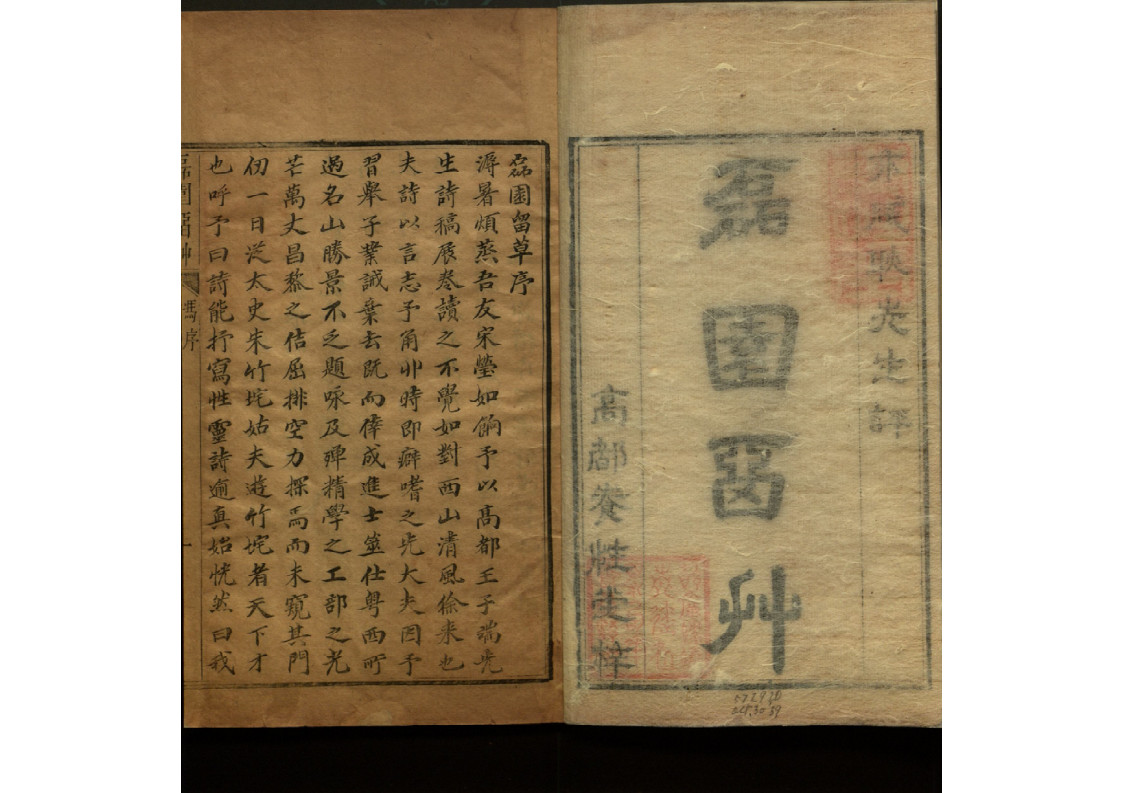 先生評
磊園畱艸
高都養性堂梓
磊園留草序
溽暑煩蒸吾友宋瑩如餉予以高都王子端先
生詩稿展卷讀之不覺如對西山清風徐来也
夫詩以言志予角丱時即癖嗜之先大夫因予
習舉子業誡棄去既而倖成進士筮仕粤西所
過名山勝景不乏題咏及殫精學之工部之光
芒萬丈昌黎之佶屈排空力探焉而未窺其門
仞一日從太史朱竹垞姑夫遊竹垞者天下才
也呼予曰詩能抒寫性靈詩逎真始恍然曰我
磊園畱艸 馮序 一